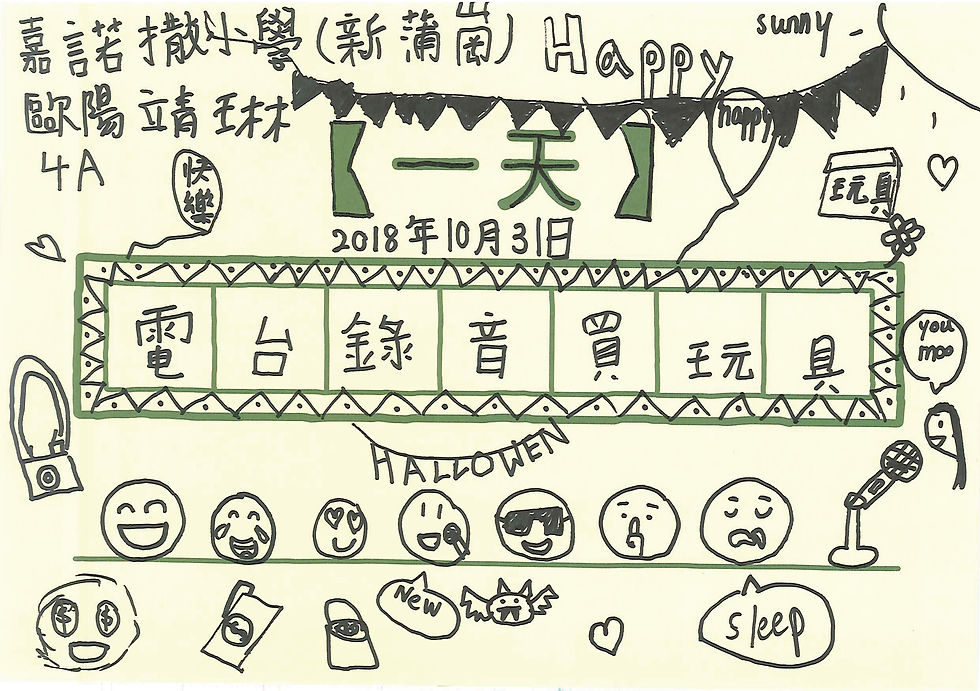 嘉諾撒小學(新蒲崗)
Happy
sunny
歐陽靖琳
happy
4A
快樂
【一天】
玩具
2018年10月31日
電台錄音買玩具
you
moo
HALLOWEN
$ $
New
sleep